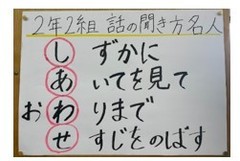 2年2組 話の聞き方名人
しずかに
あいてを見て
おわりまで
せすじをのばす